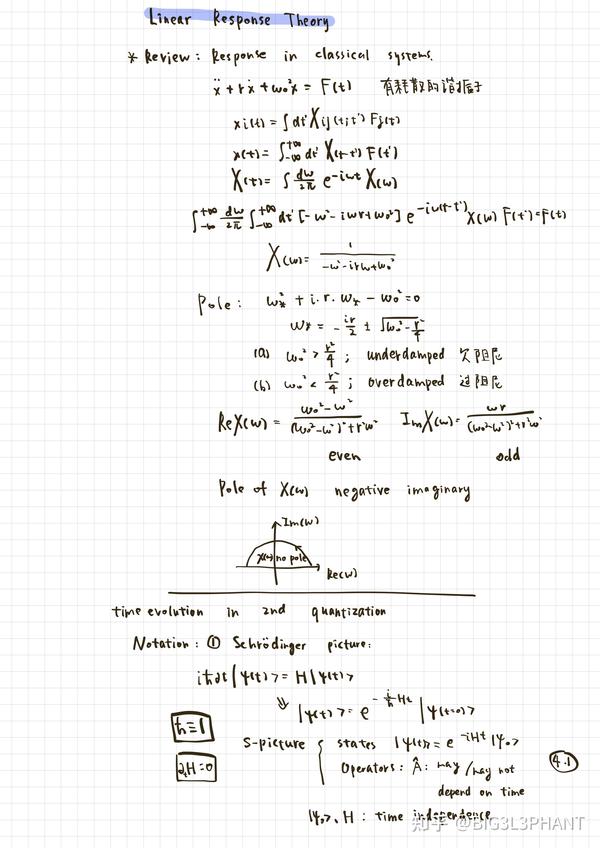 Linear Response Theory
* Review: Response in classical systems.
ẍ + rẋ + ω₀²x = F(t) 有耗散的谐振子
xi(t) = ∫dt' Xij(t;t') Fj(t)
x(t) = ∫_{-∞}^{+∞} dt' X(t-t') F(t')
X(t) = ∫ dω/2π e^{-iωt} X(ω)
∫_{-∞}^{+∞} dω/2π ∫_{-∞}^{+∞} dt' [-ω² - iωr + ω₀²] e^{-iω(t-t')} X(ω) F(t') = F(t)
X(ω) = 1/(-ω² - irω + ω₀²)
Pole: ω*² + i.r.ω* - ω₀² = 0
ω* = -ir/2 ± √(ω₀² - r²/4)
(a) ω₀² > r²/4; underdamped 欠阻尼
(b) ω₀² < r²/4; overdamped 过阻尼
ReX(ω) = (ω₀² - ω²)/((ω₀² - ω²)² + r²ω²) ImX(ω) = ωr/((ω₀² - ω²)² + r²ω²)
even odd
Pole of X(ω) negative imaginary
Im(ω)
no pole
Re(ω)
time evolution in 2nd quantization
Notation: ① Schrödinger picture:
iħ∂t|ψ(t)> = H|ψ(t)>
⇓ |ψ(t)> = e^{-i/ħ Ht} |ψ(t=0)>
ħ≡1
S-picture { states |ψ(t)> = e^{-iHt}|ψ₀>
∂tH=0
Operators: Â: may/may not
4.1
depend on time
|ψ₀>, H: time independence
知乎 @BIG3L3PHANT